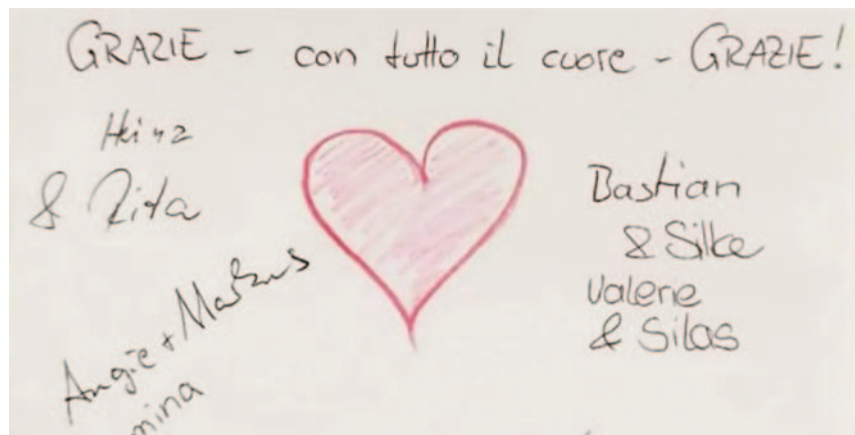 GRAZIE - con tutto il cuore - GRAZIE!
Heinz
& Rita
Angie + Markus
mina
Bastian
& Silke
Valerie
& Silas